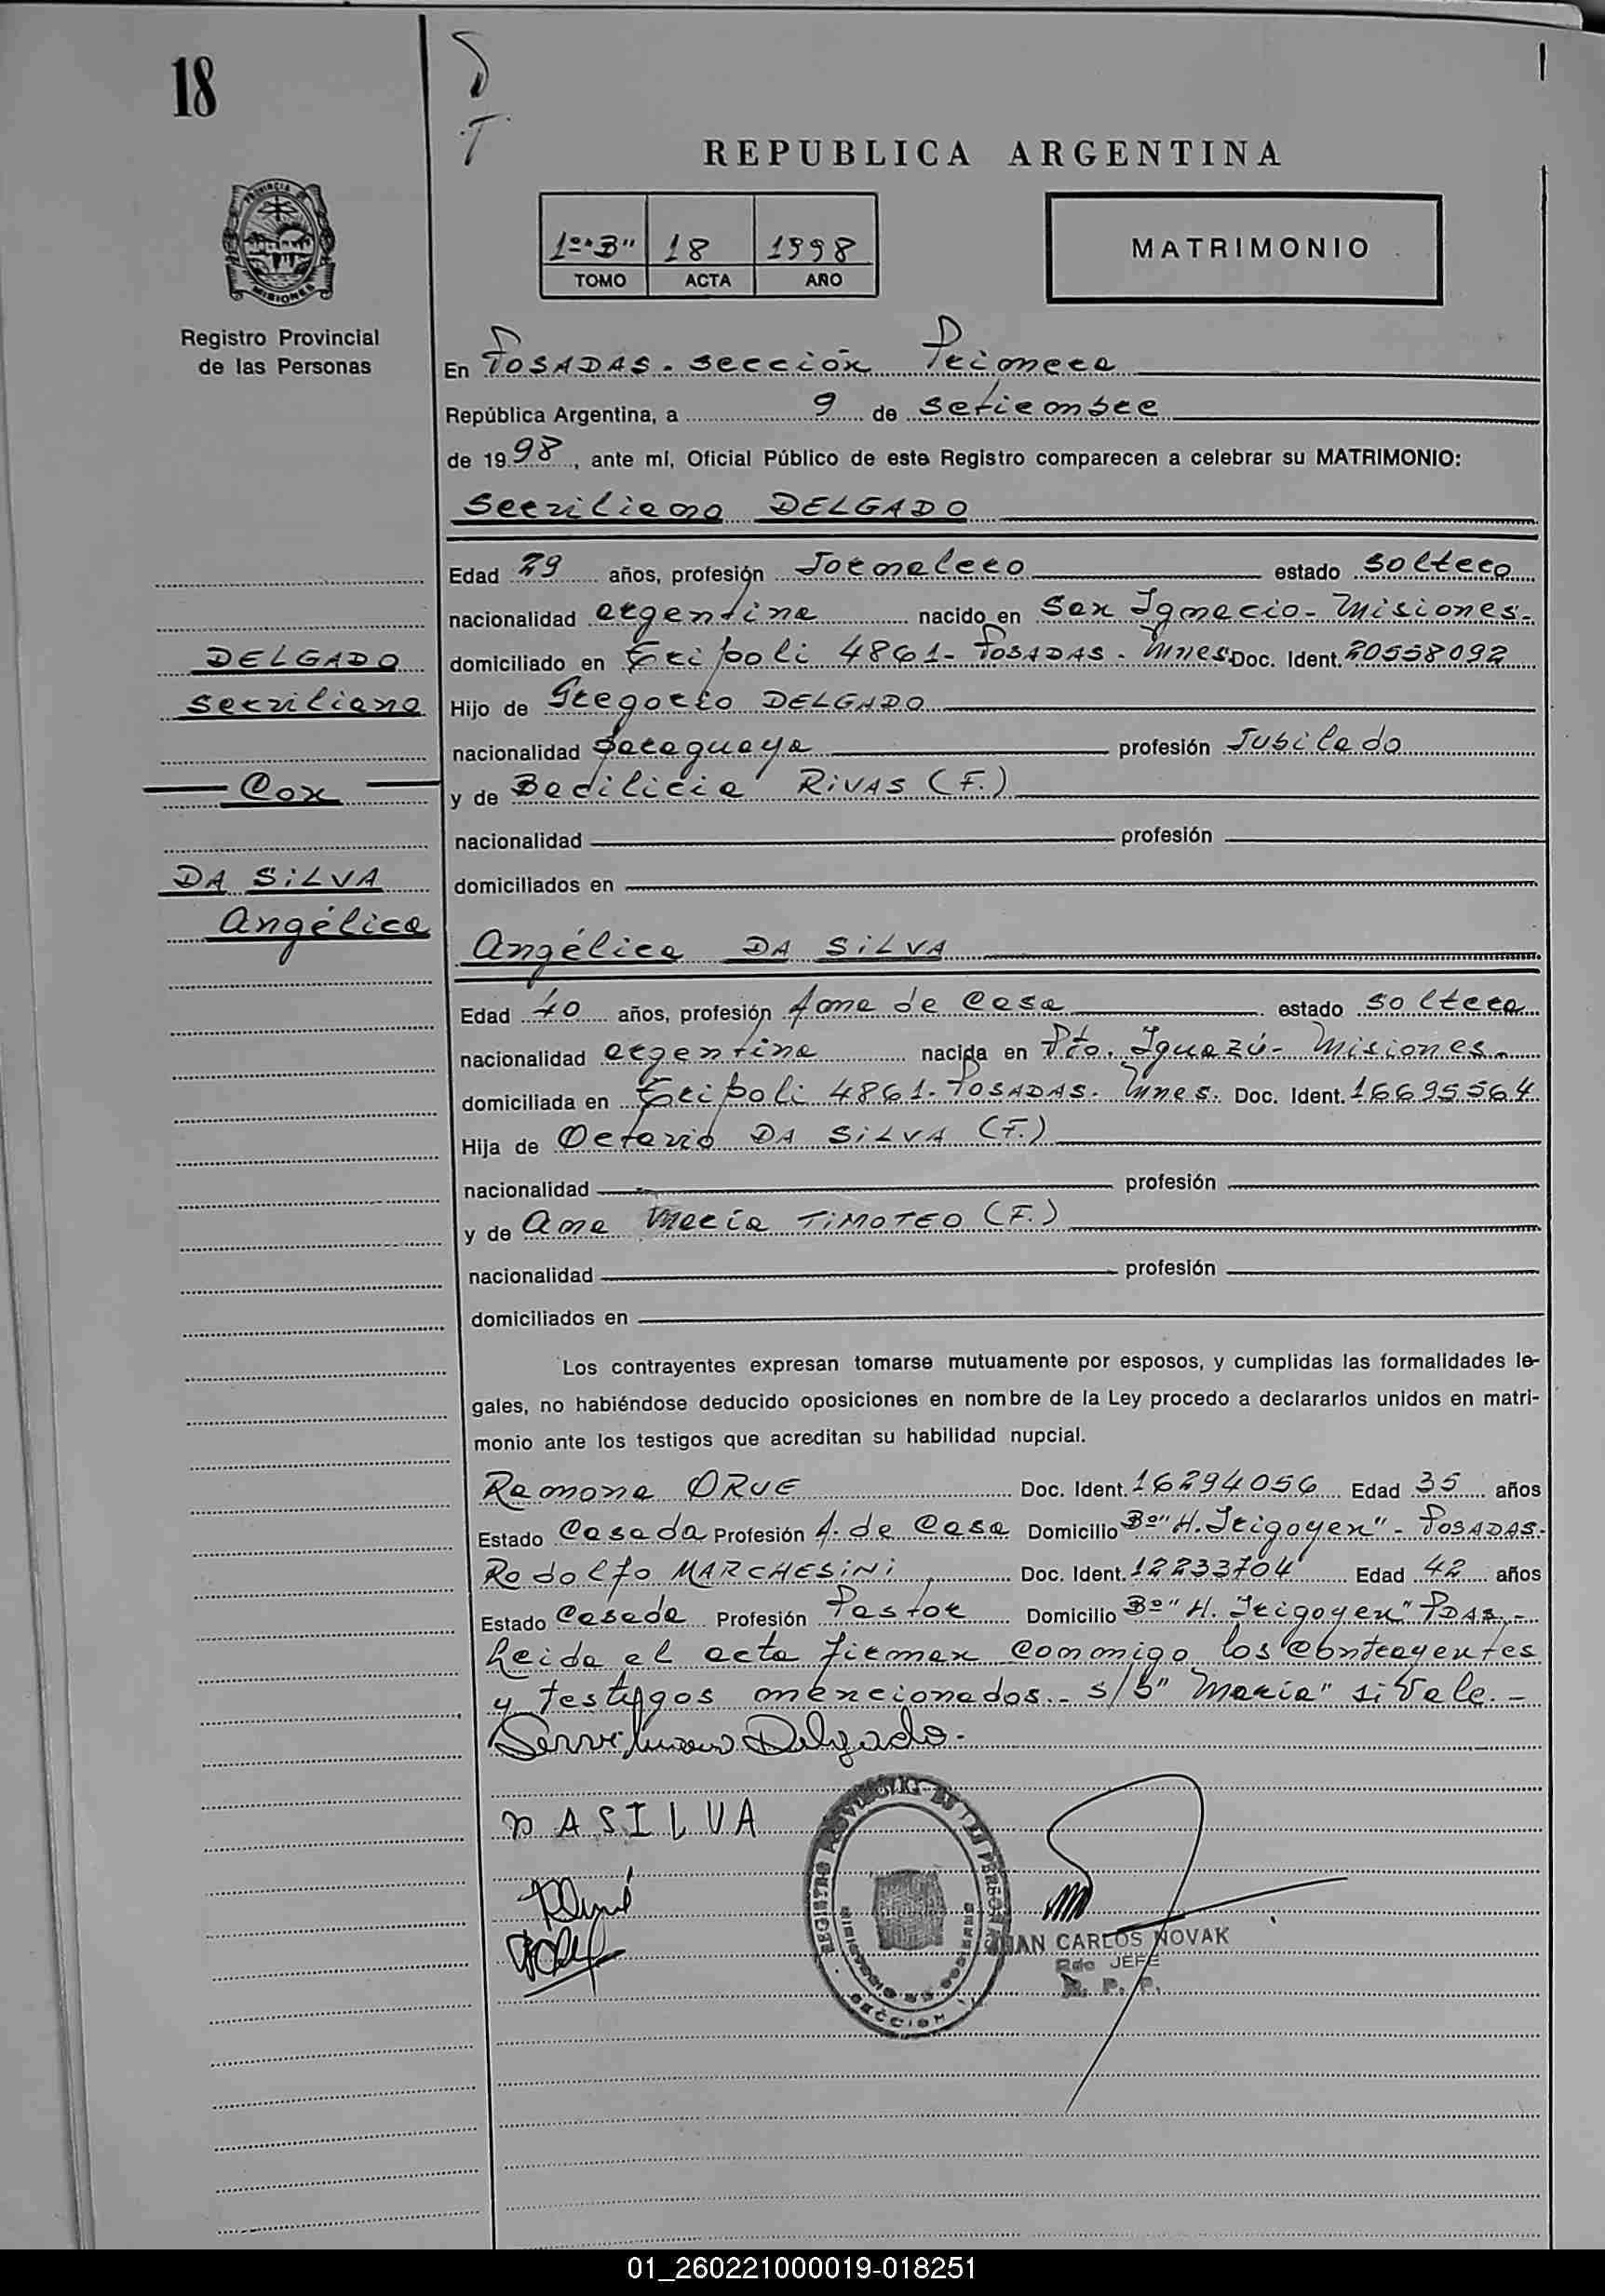 18
REPUBLICA ARGENTINA
1º "B" 18 1998
TOMO ACTA AÑO
MATRIMONIO
PROVINCIA
MISIONES
Registro Provincial
de las Personas
En POSADAS. Sección Primera
República Argentina, a 9 de Setiembre
de 1998, ante mí, Oficial Público de este Registro comparecen a celebrar su MATRIMONIO:
Serviliano DELGADO
Edad 29 años, profesión Jornalero estado soltero
nacionalidad argentina nacido en San Ignacio - Misiones.
domiciliado en Trípoli 4861- POSADAS - Mnes. Doc. Ident. 20558092
Hijo de Gregorio DELGADO
nacionalidad paraguaya profesión Jubilado
y de Bacilicia RIVAS (F.)
nacionalidad profesión
domiciliados en
DELGADO
Serviliano
Con
DA SILVA
Angélica
Angélica DA SILVA
Edad 40 años, profesión Ama de Casa estado soltera
nacionalidad argentina nacida en Pto. Iguazú - Misiones.
domiciliada en Trípoli 4861- POSADAS - Mnes. Doc. Ident. 16695564
Hija de Octavio DA SILVA (F.)
nacionalidad profesión
y de Ana María TIMOTEO (F.)
nacionalidad profesión
domiciliados en
Los contrayentes expresan tomarse mutuamente por esposos, y cumplidas las formalidades le-
gales, no habiéndose deducido oposiciones en nombre de la Ley procedo a declararlos unidos en matri-
monio ante los testigos que acreditan su habilidad nupcial.
Ramona ORUE Doc. Ident. 16294056 Edad 35 años
Estado Casada Profesión A. de Casa Domicilio Bº "H. Irigoyen" - POSADAS.
Rodolfo MARCHESINI Doc. Ident. 12233704 Edad 42 años
Estado Casada Profesión Pastor Domicilio Bº "H. Irigoyen" PDAS.-
Leida el acta firman conmigo los contrayentes
y testigos mencionados.- s/b "María" si Vale.-
Serviliano Delgado.
DA SILVA
REGISTRO PROVINCIAL DE LAS PERSONAS
SECCION 1
JUAN CARLOS NOVAK
JEFE
R. P. P.
01_260221000019-018251